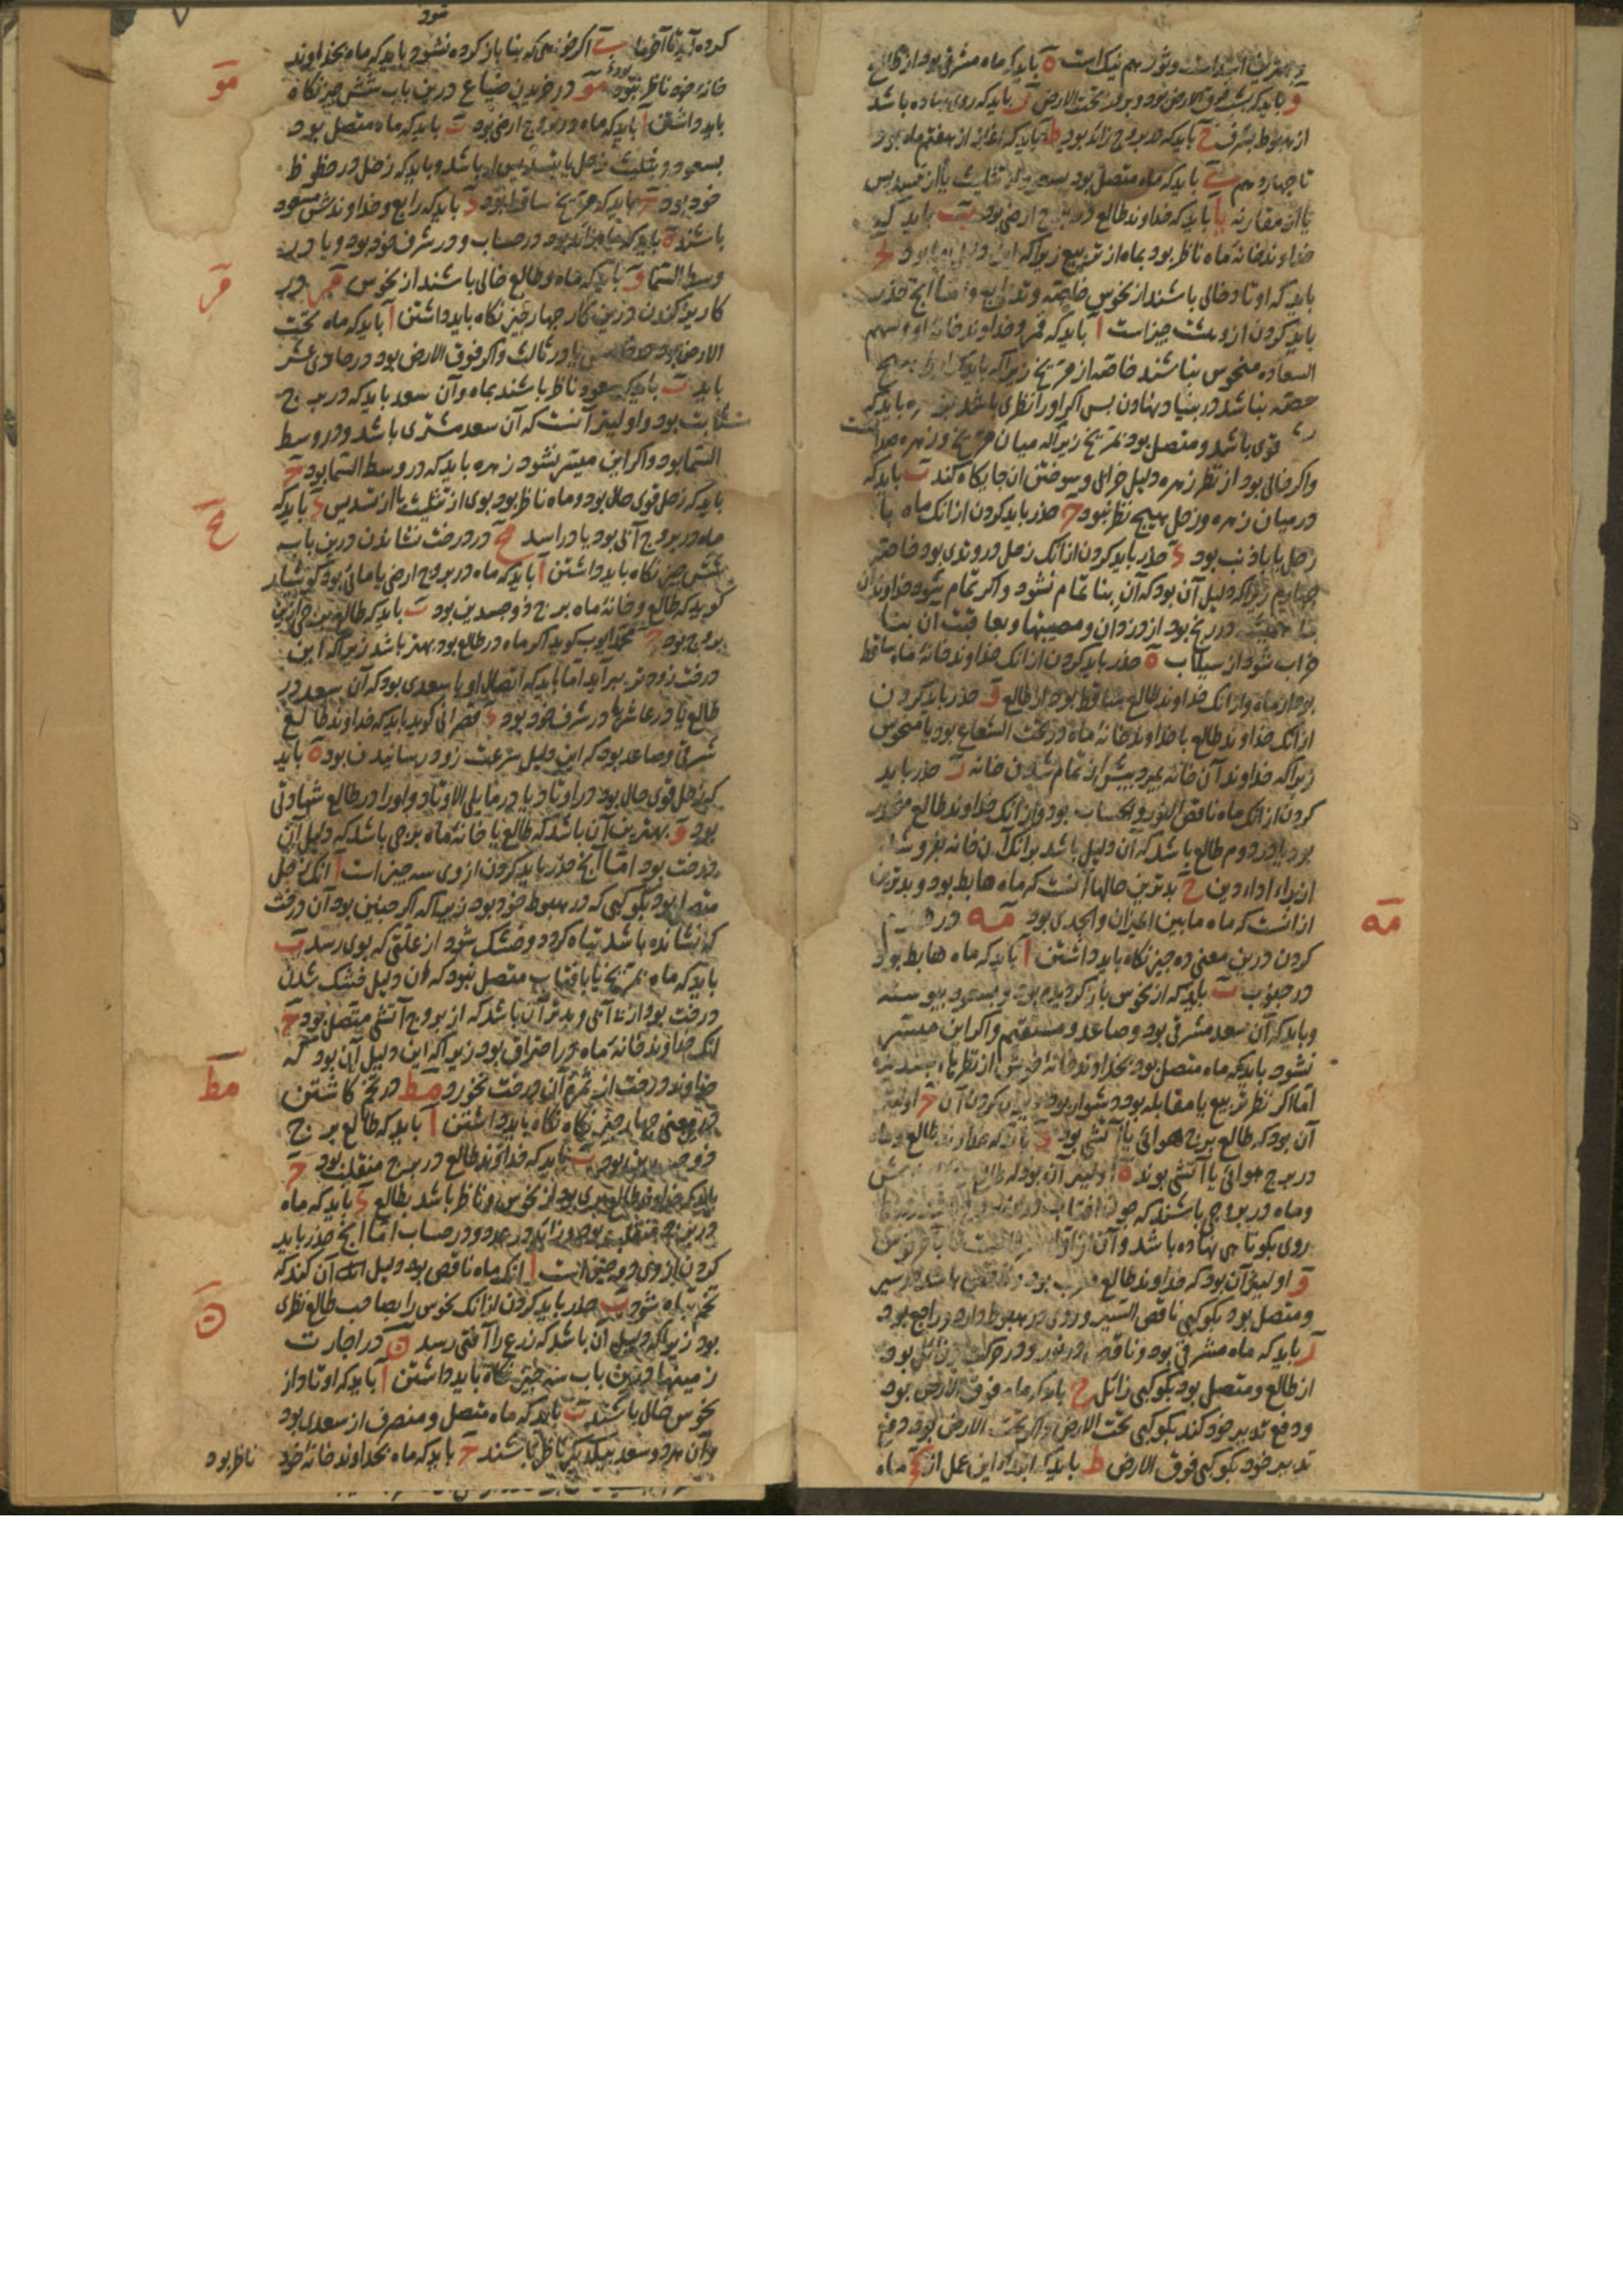 و بهترین اسد است و ثور هم نیک است هٓ باید که ماه مشرقی بود از طالع
وٓ باید که بشب فوق الارض بود و بروز تحت الارض زٓ باید که روی نهاده باشد
از هبوط بشرف حٓ باید که در بروج زائد بود ط باید که از هفتم ماه بود
تا چهاردهم یٓ باید که ماه متصل بود بسعود از تثلیث یا از تسدیس
یا از مقارنه یآ باید که خداوند طالع در برج ارضی بود یبٓ باید که
خداوند خانهٔ ماه ناظر بود بماه از تربیع زیرا که این دلیل بود یحٓ
باید که اوتاد خالی باشند از نحوس خاصه وتد رابع و اما آنچ حذر
باید کردن از و هشت چیز است آ باید که قمر و خداوند خانهٔ او و سهم
السعاده منحوس نباشند خاصه از مریخ زیرا که باید که مریخ
حصه نباشد در بنیاد نهادن پس اگر او را نظری باشد زهره باید که
قوی باشد و متصل بود بمریخ زیرا که میان مریخ و زهره صداقت
و اگر خالی بود از نظر زهره دلیل خرابی و سوختن آن جایگاه کند بٓ باید که
در میان زهره و زحل هیچ نظر نبود حٓ حذر باید کردن از آنک ماه با
زحل یا با ذنب بود دٓ حذر باید کردن از آنک زحل در وتدی بود خاصه
چهارم زیرا که دلیل آن بود که آن بنا تمام نشود و اگر تمام شود خداوندان
بنا همیشه در رنج بود از دزدان و مصیبتها و بعاقبت آن بنا
خراب شود از سیلاب هٓ حذر باید کردن از آنک خداوند خانهٔ ماه ساقط
بود از ماه و از آنک خداوند طالع ساقط بود از طالع وٓ حذر باید کردن
از آنک خداوند طالع یا خداوند خانهٔ ماه در تحت الشعاع بود یا منحوس
زیرا که خداوند آن خانه بمیرد پیش از تمام شدن خانه زٓ حذر باید
کردن از آنک ماه ناقص النور و الحساب بود و از آنک خداوند طالع منحدر
بود یا در دوم طالع باشد که آن دلیل باشد بر آنک آن خانه بفروشند
از برای ادای دین حٓ بدترین حالها آنست که ماه هابط بود و بدترین
از آنست که ماه ما بین المیزان و الجدی بود مهٓ در
کردن درین معنی ده چیز نگاه باید داشتن آ باید که ماه هابط بود
در جنوب بٓ باید که از نحوس بازگردیده بود و بسعود پیوسته
و باید که آن سعد مشرقی بود و صاعد و مستقیم و اگر این میسر
نشود باید که ماه متصل بود بخداوند خانهٔ خویش از نظرهاء پسندیده
اما اگر نظر تربیع یا مقابله بود دشوار بود ویران کردن آن حٓ اولیتر
آن بود که طالع برج هوائی یا آتشی بود دٓ باید که خداوند طالع و ماه
در برج هوائی یا آتشی بوند هٓ اولیتر آن بود که طالع
و ماه در برجی باشند که چون آفتاب
روی بکوتاهی نهاده باشد و آن از اول سرطانست تا بآخر قوس
وٓ اولیتر آن بود که خداوند طالع مغرب بود و ناقص باشد در سیر
و متصل بود بکوکبی ناقص السیر و روی در هبوط دارد و راجع بود
زٓ باید که ماه مشرقی بود و ناقص در نور و در حرکت و زائل بود
از طالع و متصل بود بکوکبی زائل حٓ باید که ماه فوق الارض بود
و دفع تدبیر خود کند بکوکبی تحت الارض و اگر تحت الارض بود دفع
تدبیر خود بکوکبی فوق الارض ط باید که ابتداء این عمل از ماه
مهٓ
شود
کرده آید تا آخر ماه بٓ اگر خواهی که بنا باز کرده نشود باید که ماه بخداوند
خانهٔ خود ناظر نبود مو در خریدن ضیاع درین باب شش چیز نگاه
باید داشتن آ باید که ماه در بروج ارضی بود بٓ باید که ماه متصل بود
بسعود و بتثلیث زحل یا بتسدیس او باشد و باید که زحل در حظوظ
خود بود حٓ باید که مریخ ساقط بود دٓ باید که رابع و خداوندش مسعود
باشند هٓ باید که ماه زائد بود در حساب و در شرف خود بود و یا در
وسط السما وٓ باید که ماه و طالع خالی باشند از نحوس مز در
کاریز کندن درین کار چهار چیز نگاه باید داشتن آ باید که ماه تحت
الارض بود در خامس یا در ثالث و اگر فوق الارض بود در حادی عشر
باید بٓ باید که سعود ناظر باشند بماه و آن سعد باید که در برج
ثابت بود و اولیتر آنست که آن سعد مشتری باشد و در وسط
السما بود و اگر این میسر نشود زهره باید که در وسط السما بود حٓ
باید که زحل قوی حال بود و ماه ناظر بود بوی از تثلیث یا از تسدیس دٓ باید که
ماه در بروج آبی بود یا در اسد مح در درخت نشاندن درین باب
شش چیز نگاه باید داشتن آ باید که ماه در بروج ارضی یا مائی بود کوشیار
گوید که طالع و خانهٔ ماه برج ذو جسدین بود بٓ باید که طالع برجی ازین
بروج بود حٓ محمد ایوب گوید اگر ماه در طالع بود بهتر باشد زیرا که این
درخت زودتر برآید اما باید که اتصال او با سعدی بود که آن سعد در
طالع یا در عاشر یا در شرف خود بود دٓ قصرانی گوید باید که خداوند طالع
شرقی و صاعد بود که این دلیل سرعت زود رسانیدن بود هٓ باید
که زحل قوی حال بود در اوتاد یا در مایلی الاوتاد و او را در طالع شهادتی
بود وٓ بهترین آن باشد که طالع یا خانهٔ ماه برجی باشد که دلیل آن
درخت بود اما آنچ حذر باید کردن از وی سه چیز است آ آنک زحل
متصل بود بکوکبی که در هبوط خود بود زیرا که اگر چنین بود آن درخت
که نشانده باشد تباه گردد و خشک شود از علتی که بوی رسد بٓ
باید که ماه بمریخ یا بآفتاب متصل نبود که آن دلیل خشک شدن
درخت بود از بی آبی و بدتر آن باشد که از بروج آتشی متصل بود حٓ
آنک خداوند خانهٔ ماه در احتراق بود زیرا که این دلیل آن بود که
خداوند درخت از ثمرهٔ آن درخت نخورد مط در تخم کاشتن
درین معنی چهار چیز نگاه باید داشتن آ باید که طالع برج
ذو جسدین بود بٓ باید که خداوند طالع در برج منقلب بود حٓ
باید که خداوند طالع بری بود از نحوس و ناظر باشد بطالع دٓ باید که ماه
در برج منقلب بود و زائد در عدد و در حساب اما آنچ حذر باید
کردن از وی دو چیز است آ آنک ماه ناقص بود دلیل آن کند که
تخم تباه شود بٓ حذر باید کردن از آنک نحوس را بصاحب طالع نظری
بود زیرا که دلیل آن باشد که زرع را آفتی رسد ن در اجارت
زمینها درین باب سه چیز نگاه باید داشتن آ باید که اوتاد از
نحوس خالی باشند بٓ باید که ماه متصل و منصرف از سعدی بود
و آن هر دو سعد بیکدیگر ناظر باشند حٓ باید که ماه بخداوند خانهٔ خود ناظر بود
موٓ
مزٓ
محٓ
مطٓ
نٓ